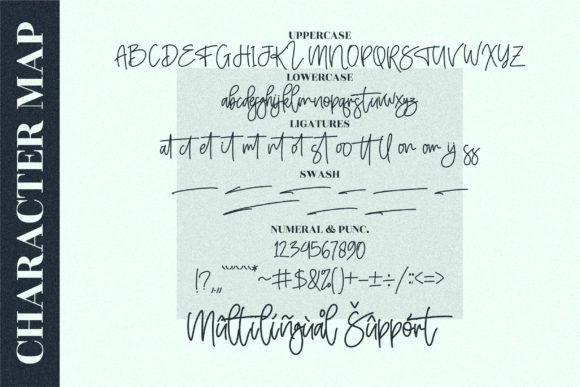 CHARACTER MAP
UPPERCASE
ABCDEFGHIJKLMNOPQRSTUVWXYZ
LOWERCASE
abcdefghijklmnopqrstuvwxyz
LIGATURES
at ct et it mt nt ot st oo tt ll on om y ss
SWASH
NUMERAL & PUNC.
1234567890
!?,.,,"""*~#$&%()+-±÷/:;<=>
Mûltilíñgùål Šûppórt